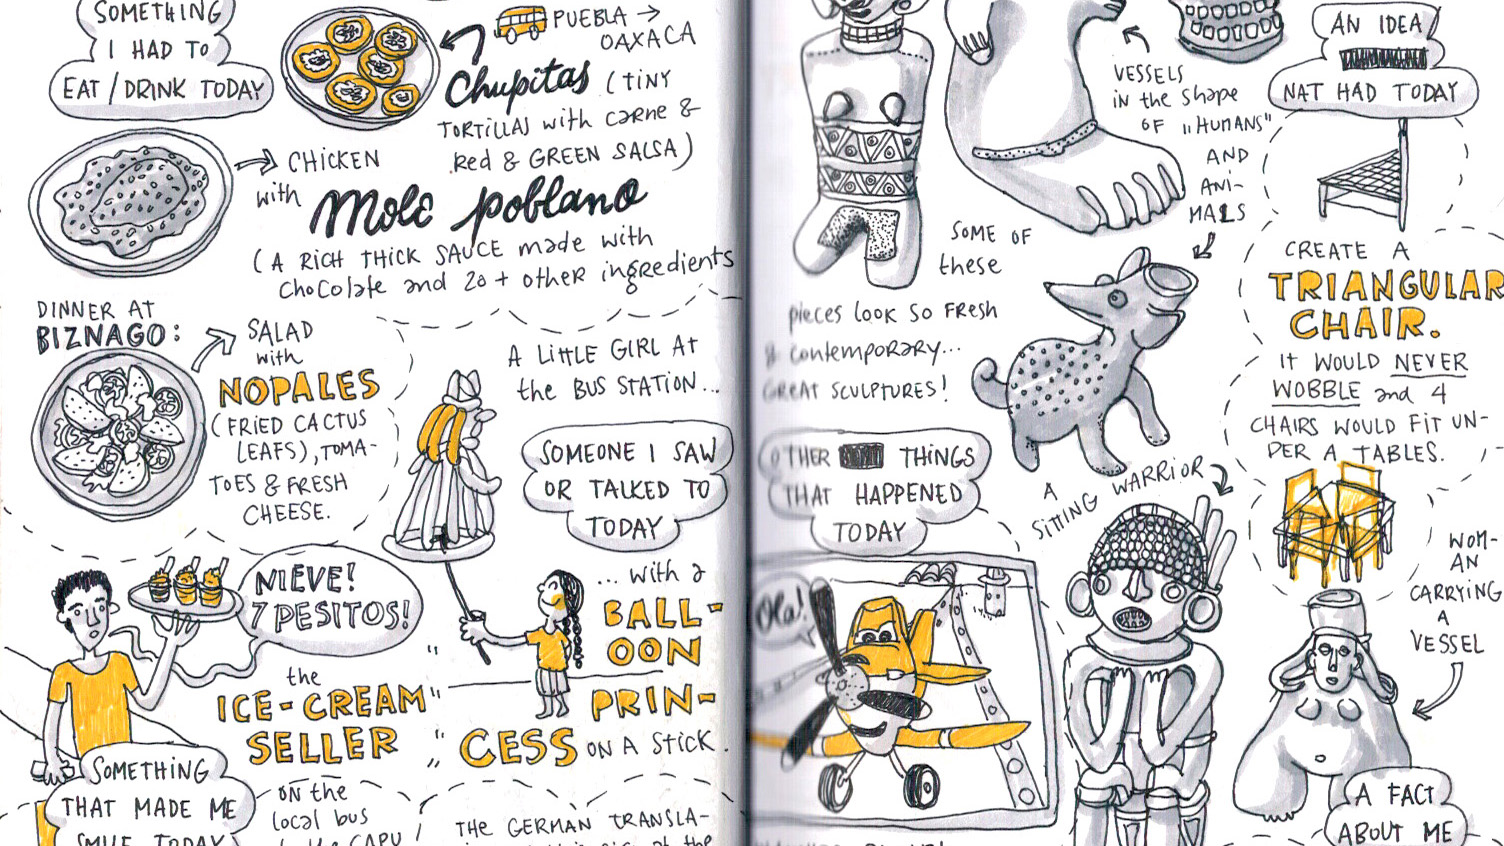 SOMETHING
I HAD TO
EAT / DRINK TODAY
PUEBLA →
OAXACA
Chupitas (TINY
TORTILLAS with carne &
Red & GREEN SALSA)
CHICKEN
with Mole poblano
(A RICH THICK SAUCE made with
chocolate and 20+ other ingredients
DINNER AT
BIZNAGO:
SALAD
with
NOPALES
(FRIED CACTUS
LEAFS), TOMA-
TOES & FRESH
CHEESE.
A LITTLE GIRL AT
the BUS STATION...
SOMEONE I SAW
OR TALKED TO
TODAY
... with a
BALL-
OON
PRIN-
CESS ON A STICK.
NIEVE!
7 PESITOS!
the
"ICE-CREAM"
SELLER
SOMETHING
THAT MADE ME
SMILE TODAY
ON the
local bus
CAPU
THE GERMAN TRANSLA-
VESSELS
in the shape
OF "HUMANS"
AND
ANI-
MALS
SOME OF
these
pieces LOOK SO FRESH
& contemporary...
GREAT SCULPTURES!
OTHER THINGS
THAT HAPPENED
TODAY
Ola!
A
SITTING WARRIOR
AN IDEA
NAT HAD TODAY
CREATE A
TRIANGULAR
CHAIR.
IT WOULD NEVER
WOBBLE and 4
CHAIRS WOULD FIT UN-
DER A TABLES.
WOM-
AN
CARRYING
A
VESSEL
A FACT
ABOUT ME